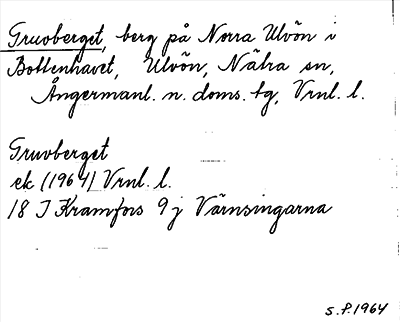 Gruvberget, berg på Norra Ulvön i
Bottenhavet, Ulvön, Nätra sn,
Ångermanl. n. doms. tg, Vrnl. l.
Gruvberget
ek (1964) Vrnl. l.
18 I Kramfors 9 j Värnsingarna
S.P. 1964